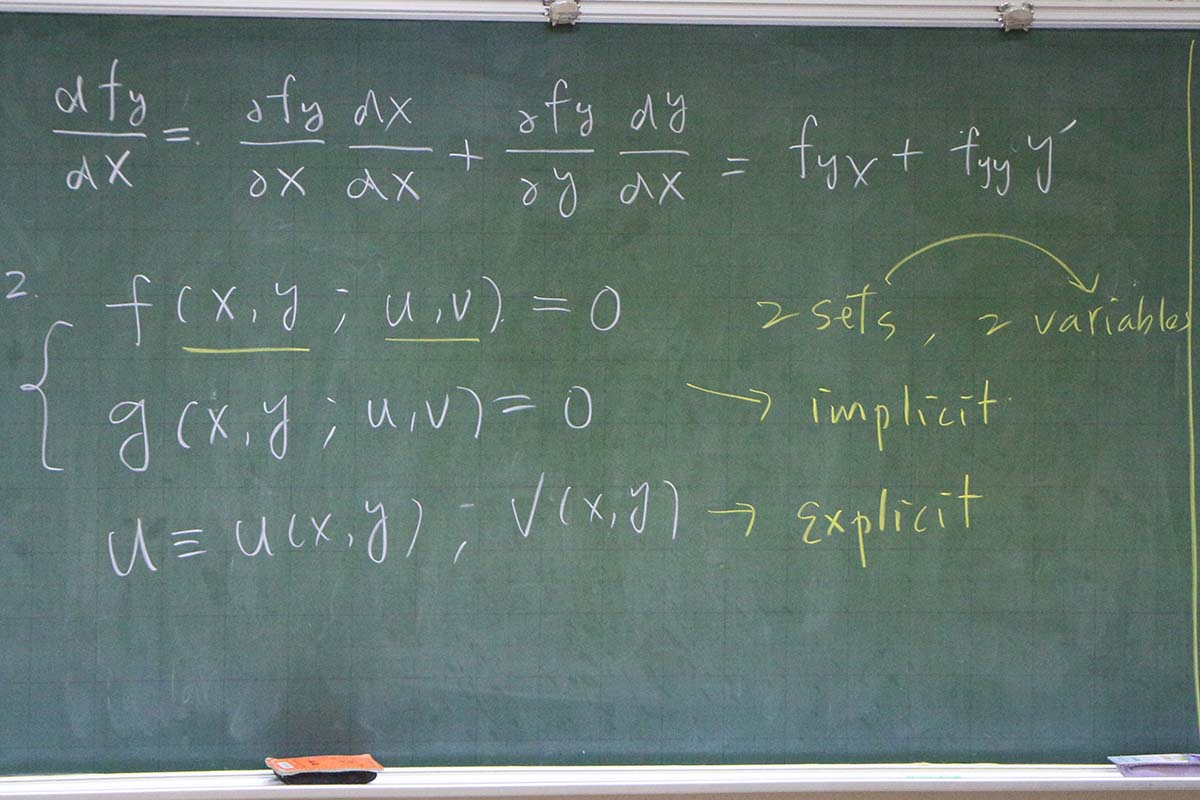 dfy/dx = ∂fy/∂x dx/dx + ∂fy/∂y dy/dx = fyx + fyy y′
2. { f(x, y ; u, v) = 0 2 sets, 2 variables
g(x, y ; u, v) = 0 → implicit
u ≡ u(x, y) ; v(x, y) → Explicit